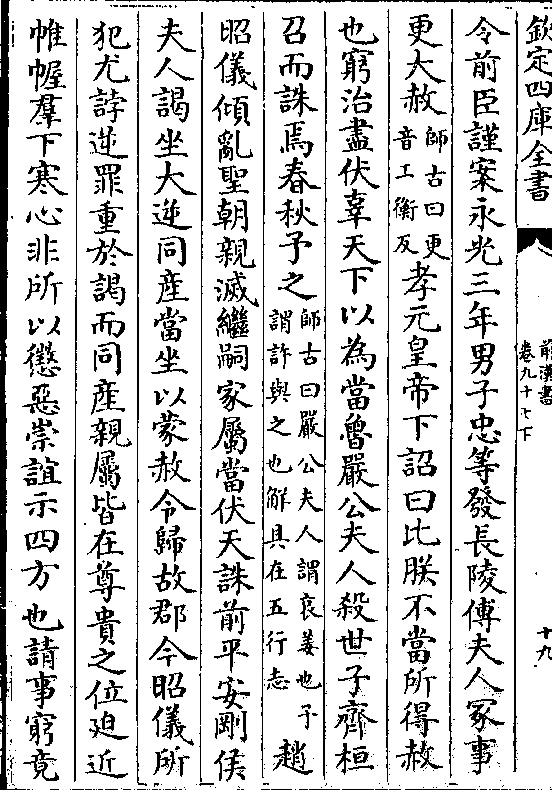 欽定四庫全書
前漢書
卷九十七下
十九
令前臣謹案永光三年男子忠等發長陵傅夫人冢事
更大赦師古曰更音工衡反孝元皇帝下詔曰此朕不當所得赦
也窮治盡伏辜天下以為當魯嚴公夫人殺世子齊桓
召而誅焉春秋予之師古曰嚴公夫人謂哀姜也予謂許與之也解具在五行志趙
昭儀傾亂聖朝親滅繼嗣家屬當伏天誅前平安剛侯
夫人謁坐大逆同產當坐以蒙赦令歸故郡今昭儀所
犯尤誖逆罪重於謁而同產親屬皆在尊貴之位廹近
帷幄羣下寒心非所以懲惡崇誼示四方也請事窮竟